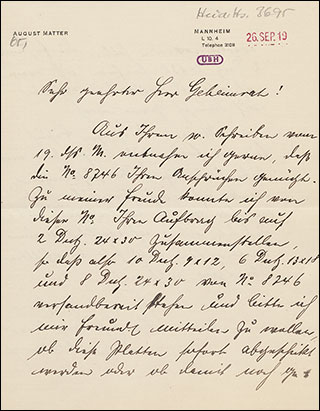 Heid. Hs. 3695
AUGUST MATTER
MANNHEIM
L. 10. 4
Telephon 3109
26. SEP. 19
UBH
Sehr geehrter Herr Geheimrat!
Aus Ihrem w. Schreiben vom
19. ds. M. entnehme ich gerne, daß
die No. 8746 Ihren Ansprüchen genügt.
Zu meiner Freude konnte ich von
dieser No. Ihren Auftrag bis auf
2 Dutz. 24x30 zusammenstellen,
so daß also 10 Dutz. 9x12, 6 Dutz. 13x18
und 8 Dutz. 24x30 von No. 8746
versandbereit stehen und bitte ich
mir freundl. mitteilen zu wollen,
ob diese Platten sofort abgeschickt
werden oder ob damit noch